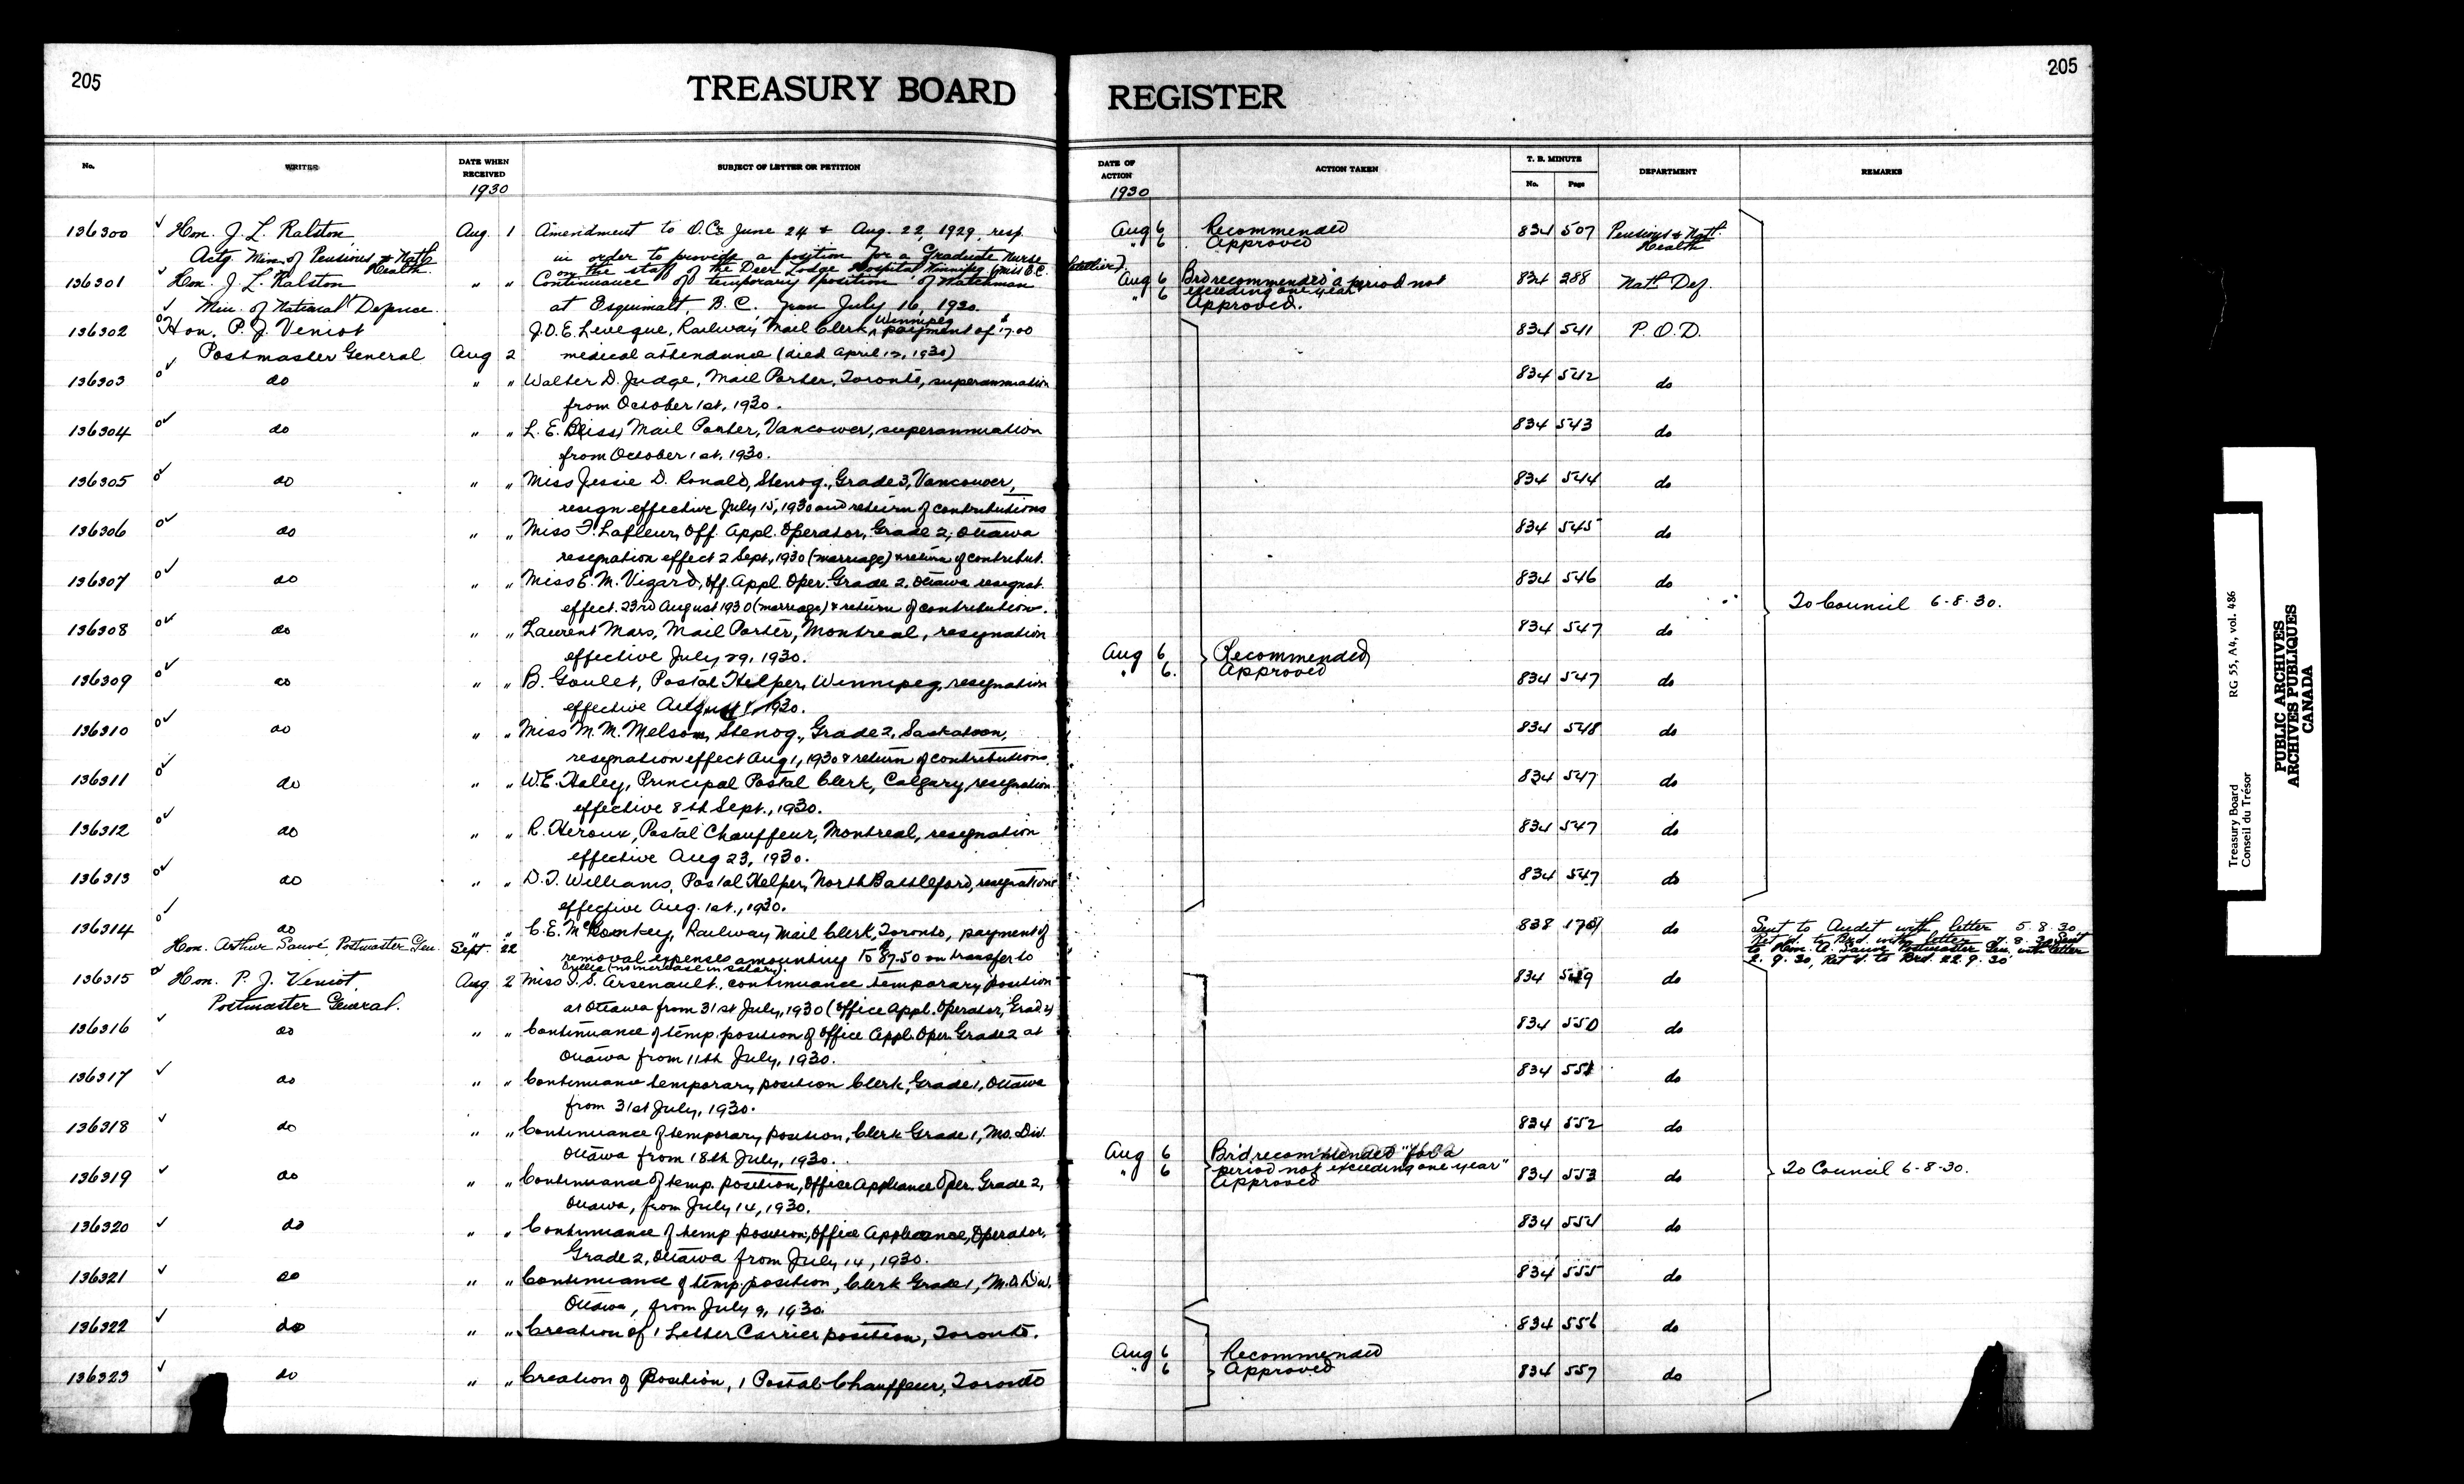 205
TREASURY BOARD
REGISTER
205
No.
WRITER
DATE WHEN RECEIVED
SUBJECT OF LETTER OR PETITION
DATE OF ACTION
ACTION TAKEN
T. B. MINUTE
No.
Page
DEPARTMENT
REMARKS
1930
1930
136300 Hon. J. L. Ralston, Aug. 1 Amendment to O.Cs June 24 & Aug. 22, 1929, resp. Aug 6 Recommended 834 507 Pensions & Natl. Health
Actg. Min. of Pensions & Natl. Health. in order to provide a position for a Graduate Nurse " 6 Approved
on the staff of the Deer Lodge Hospital Winnipeg (Miss E.C.
136301 Hon. J. L. Ralston " " Continuance of temporary position of Watchman Aug 6 Brd recommended a period not exceeding one year 834 288 Natl. Def.
Min. of National Defence. at Esquimalt, B.C. from July 16, 1930. " 6 Approved.
136302 Hon. P. J. Veniot J.O.E. Leveque, Railway Mail Clerk, Winnipeg payment of $17.00 834 541 P.O.D.
Postmaster General Aug 2 medical attendance (died April 12, 1930)
136303 do " " Walter D. Judge, Mail Porter, Toronto, superannuation 834 542 do
from October 1st, 1930.
136304 do " " L. E. Bliss, Mail Porter, Vancouver, superannuation 834 543 do
from October 1st, 1930.
136305 do " " Miss Jessie D. Ronald, Stenog., Grade 3, Vancouver, 834 544 do
resign effective July 15, 1930 and return of contributions
136306 do " " Miss F. Lafleur, Off. Appl. Operator, Grade 2, Ottawa 834 545 do
resignation effect 2 Sept., 1930 (marriage) & return of contribut.
136307 do " " Miss E. M. Vigard, Off. Appl. Oper. Grade 2, Ottawa resignat. 834 546 do
effect. 23rd August 1930 (marriage) & return of contribution. To Council 6-8-30.
136308 do " " Laurent Mars, Mail Porter, Montreal, resignation 834 547 do
effective July 29, 1930. Aug 6 Recommended
136309 do " " B. Goulet, Postal Helper, Winnipeg, resignation " 6. Approved 834 547 do
effective August 1, 1930.
136310 do " " Miss M. M. Melsom, Stenog., Grade 2, Saskatoon, 834 548 do
resignation effect Aug 1, 1930 & return of contributions
136311 do " " W. E. Haley, Principal Postal Clerk, Calgary, resignation 834 547 do
effective 8th Sept., 1930.
136312 do " " R. Heroux, Postal Chauffeur, Montreal, resignation 834 547 do
effective Aug 23, 1930.
136313 do " " D. T. Williams, Postal Helper, North Battleford, resignation 834 547 do
effective Aug. 1st., 1930.
136314 do " " C. E. Railway Mail Clerk, Toronto, payment of 838 do Sent to Audit with letter 5.8.30
Hon. Arthur Sauvé, Postmaster Gen. Sept. 22 removal expenses amounting to $87.50 on transfer to Ret'd. to Brd. with letter 7.8.30 Sent
(no increase in salary). to Hon. A. Sauvé Postmaster Gen. with letter
2.9.30, Ret'd. to Brd. 22.9.30
136315 Hon. P. J. Veniot, Aug 2 Miss I. S. Arsenault, continuance temporary position 834 549 do
Postmaster General. at Ottawa from 31st July, 1930 (Office Appl. Operator, Grad. 2)
136316 do " " Continuance of temp. position of Office Appl. Oper. Grade 2 at 834 550 do
Ottawa from 11th July, 1930.
136317 do " " Continuance temporary position Clerk, Grade 1, Ottawa 834 551 do
from 31st July, 1930.
136318 do " " Continuance of temporary position, Clerk Grade 1, M.O. Div. 834 552 do
Ottawa from 18th July, 1930. Aug 6 Brd. recommended "for a
136319 do " " Continuance of temp. position, Office Appliance Oper. Grade 2, " 6 period not exceeding one year" Approved 834 553 do To Council 6-8-30.
Ottawa, from July 14, 1930.
136320 do " " Continuance of temp position, Office Appliance, Operator, 834 554 do
Grade 2, Ottawa from July 14, 1930.
136321 do " " Continuance of temp. position, Clerk Grade 1, M.O. Div. 834 555 do
Ottawa, from July 9, 1930.
136322 do " " Creation of 1 Letter Carrier position, Toronto. 834 556 do
Aug 6 Recommended
136323 do " " Creation of Position, 1 Postal Chauffeur, Toronto " 6 Approved 834 557 do
Treasury Board RG 55, A4, vol. 486
Conseil du Trésor
PUBLIC ARCHIVES
ARCHIVES PUBLIQUES
CANADA